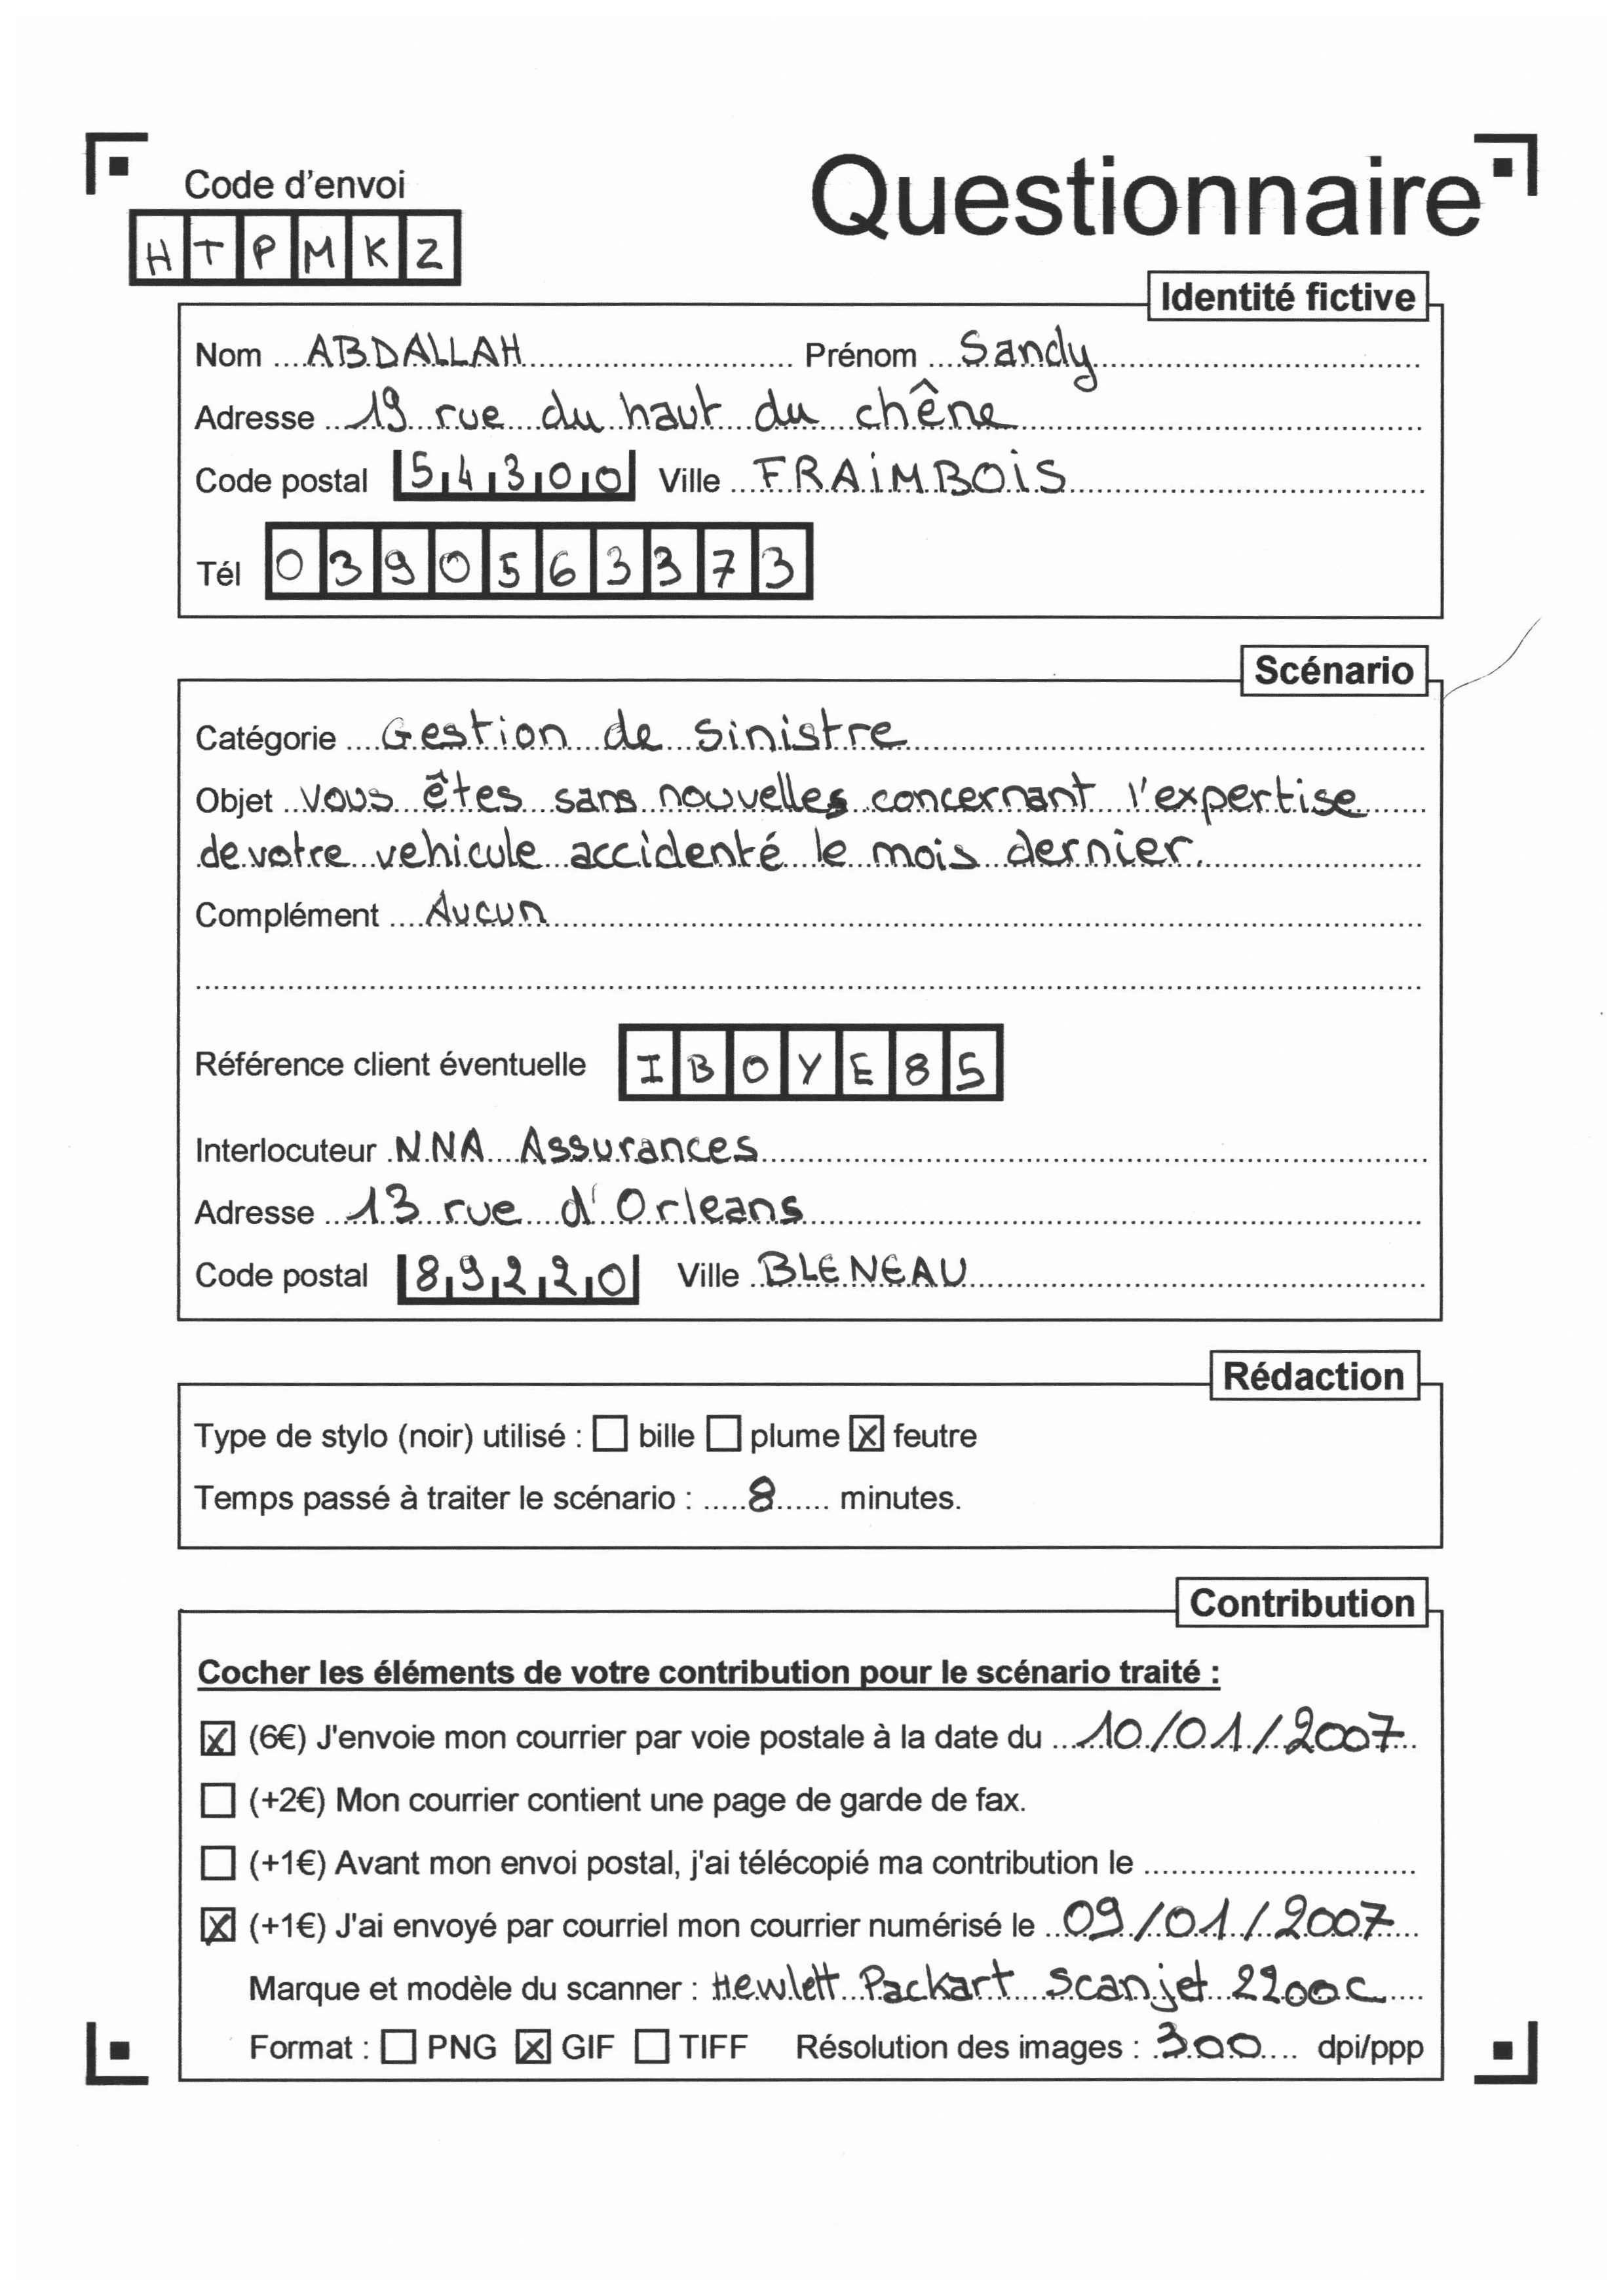 Code d'envoi
Questionnaire
HTPMKZ
Identité fictive
Nom ABDALLAH Prénom Sandy
Adresse 19 rue du haut du chêne
Code postal 54300 Ville FRAiMBOiS
Tél 0390563373
Scénario
Catégorie Gestion de sinistre
Objet Vous êtes sans nouvelles concernant l'expertise
de votre vehicule accidenté le mois dernier.
Complément Aucun
Référence client éventuelle IBOYE85
Interlocuteur NNA Assurances
Adresse 13 rue d'Orleans
Code postal 89220 Ville BLENEAU
Rédaction
Type de stylo (noir) utilisé : ☐ bille ☐ plume ☒ feutre
Temps passé à traiter le scénario : 8 minutes.
Contribution
Cocher les éléments de votre contribution pour le scénario traité :
☒ (6€) J'envoie mon courrier par voie postale à la date du 10/01/2007
☐ (+2€) Mon courrier contient une page de garde de fax.
☐ (+1€) Avant mon envoi postal, j'ai télécopié ma contribution le
☒ (+1€) J'ai envoyé par courriel mon courrier numérisé le 09/01/2007
Marque et modèle du scanner : Hewlett Packart Scanjet 2200c
Format : ☐ PNG ☒ GIF ☐ TIFF Résolution des images : 300 dpi/ppp